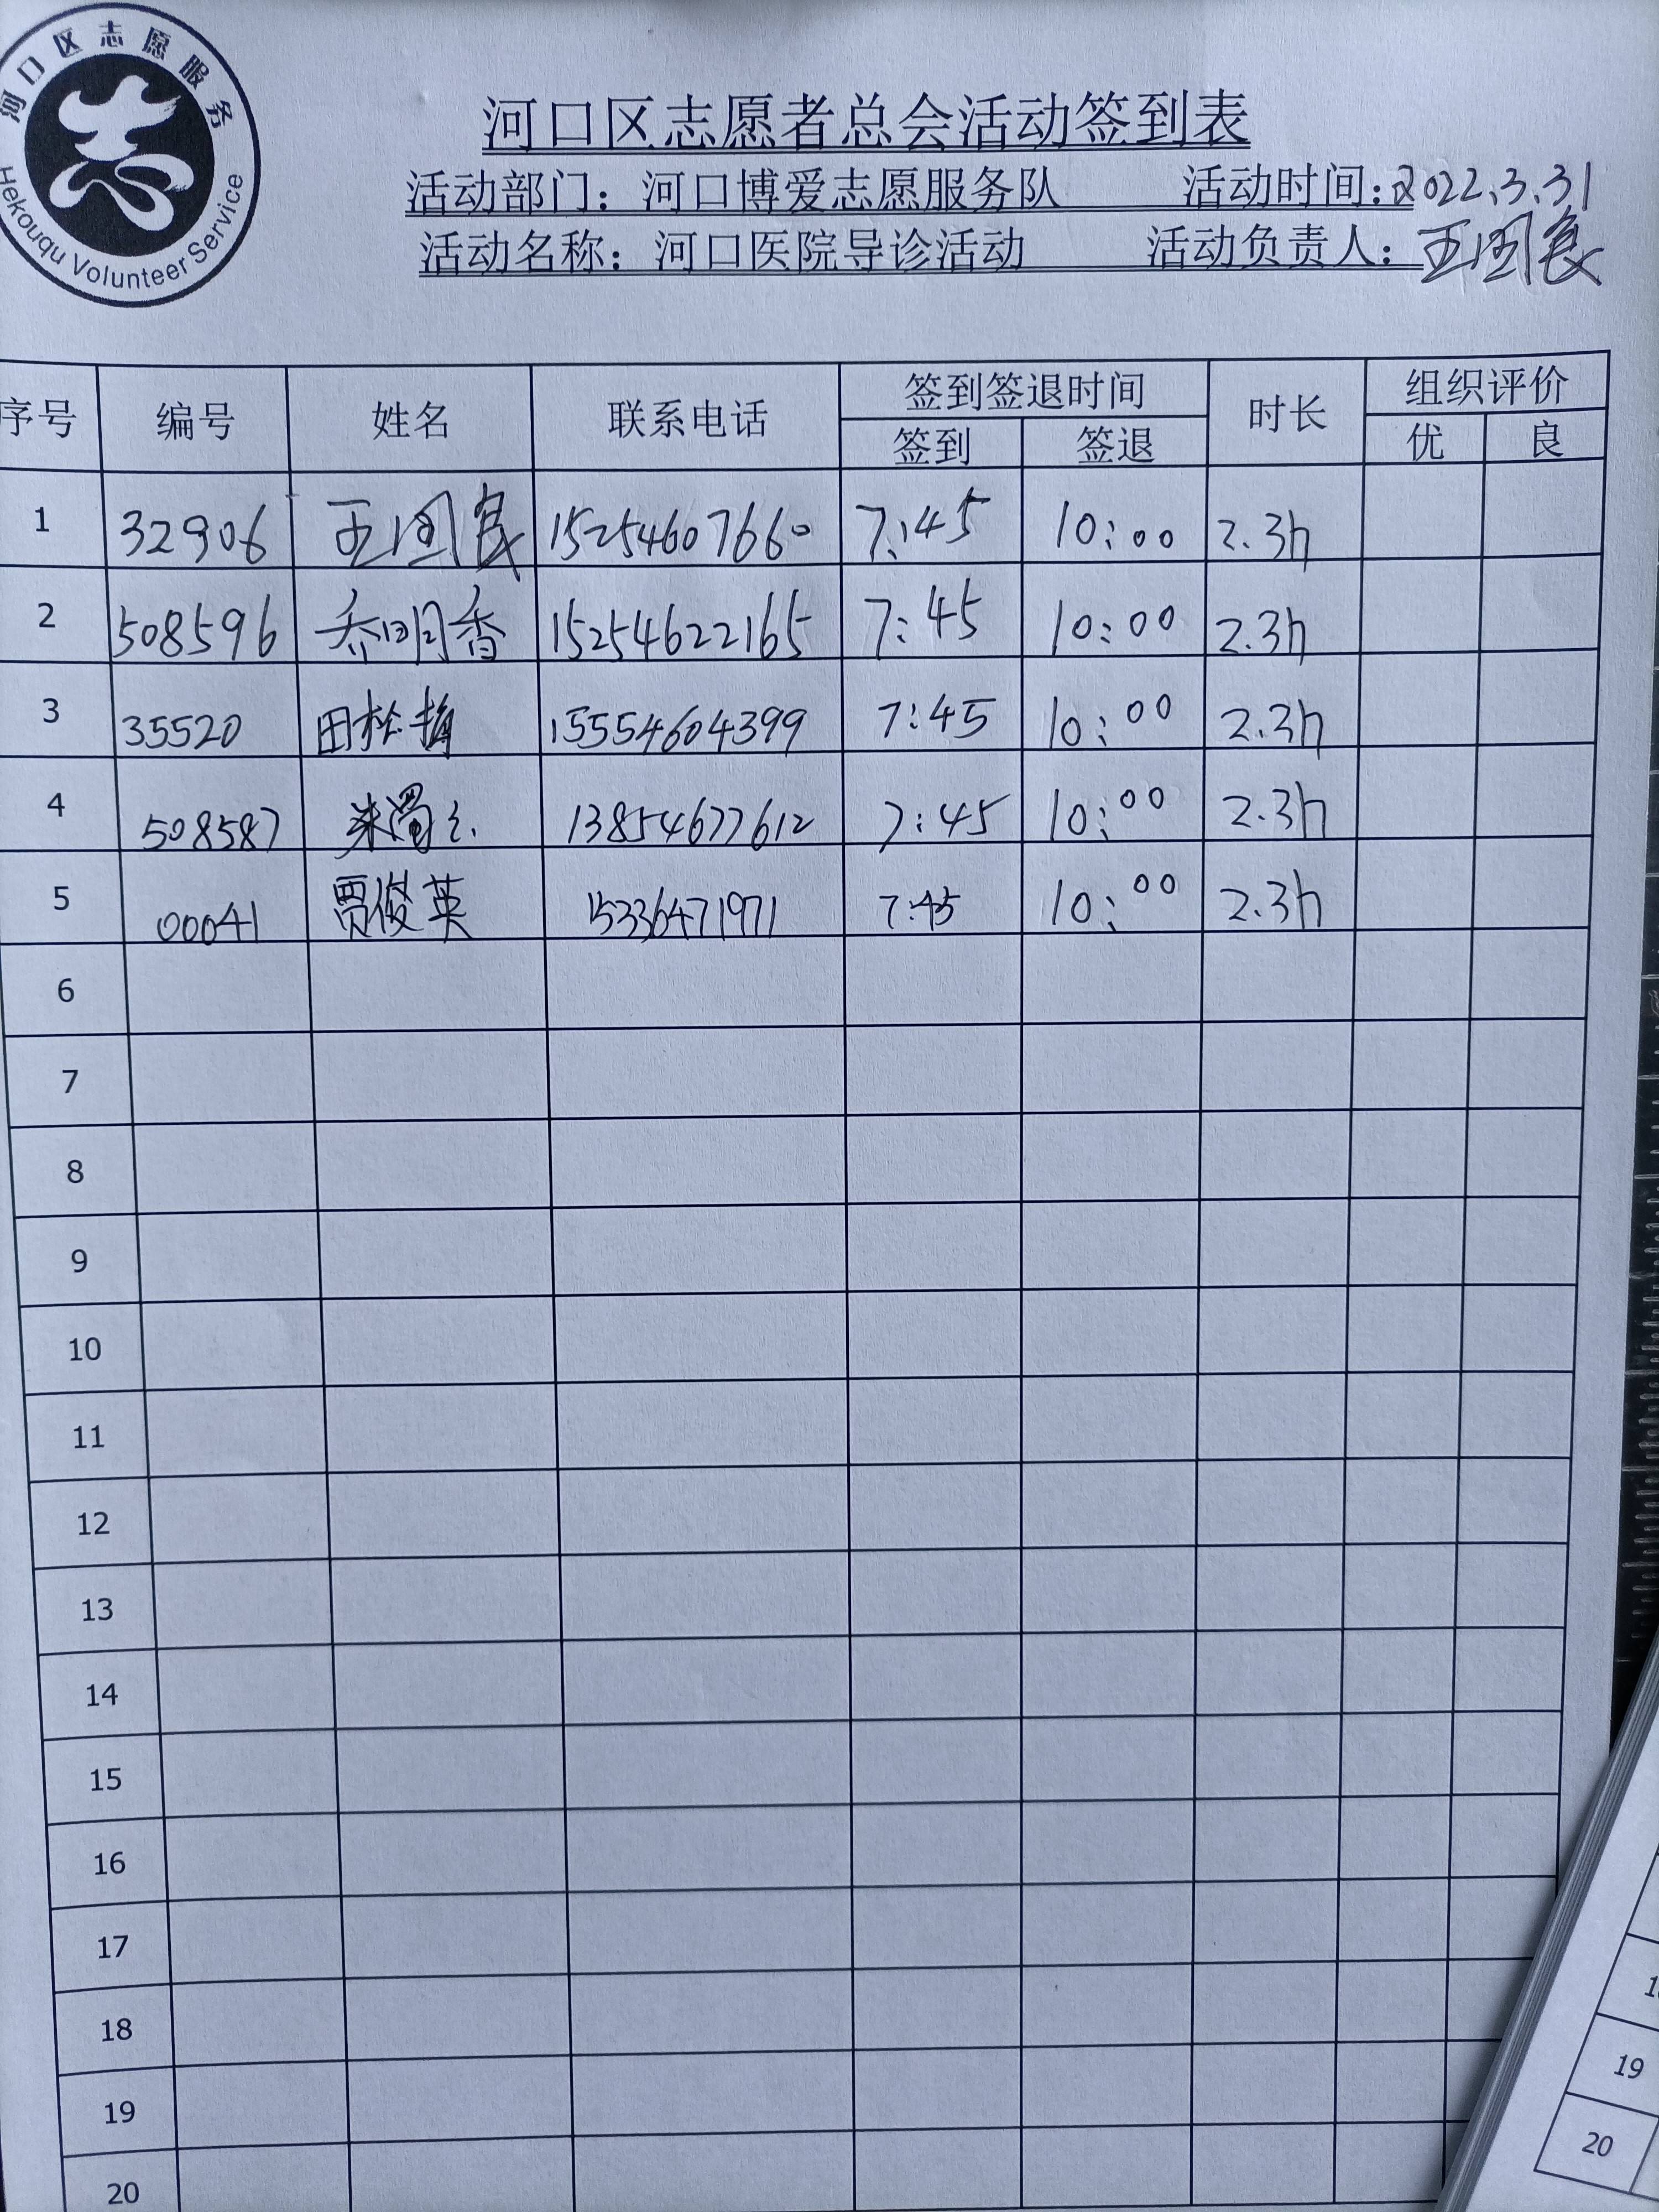 河口区志愿服务
Hekouqu Volunteer Service
河口区志愿者总会活动签到表
活动部门：河口博爱志愿服务队 活动时间：2022.3.31
活动名称：河口医院导诊活动 活动负责人：王国良
序号 编号 姓名 联系电话 签到签退时间 时长 组织评价
签到 签退 优 良
1 32906 王国良 15254607660 7:45 10:00 2.3h
2 508596 乔明香 15254622165 7:45 10:00 2.3h
3 35520 田 梅 15554604399 7:45 10:00 2.3h
4 508587 朱 13854677612 7:45 10:00 2.3h
5 00041 贾俊英 15336471971 7:45 10:00 2.3h
6
7
8
9
10
11
12
13
14
15
16
17
18
19
20
19
20